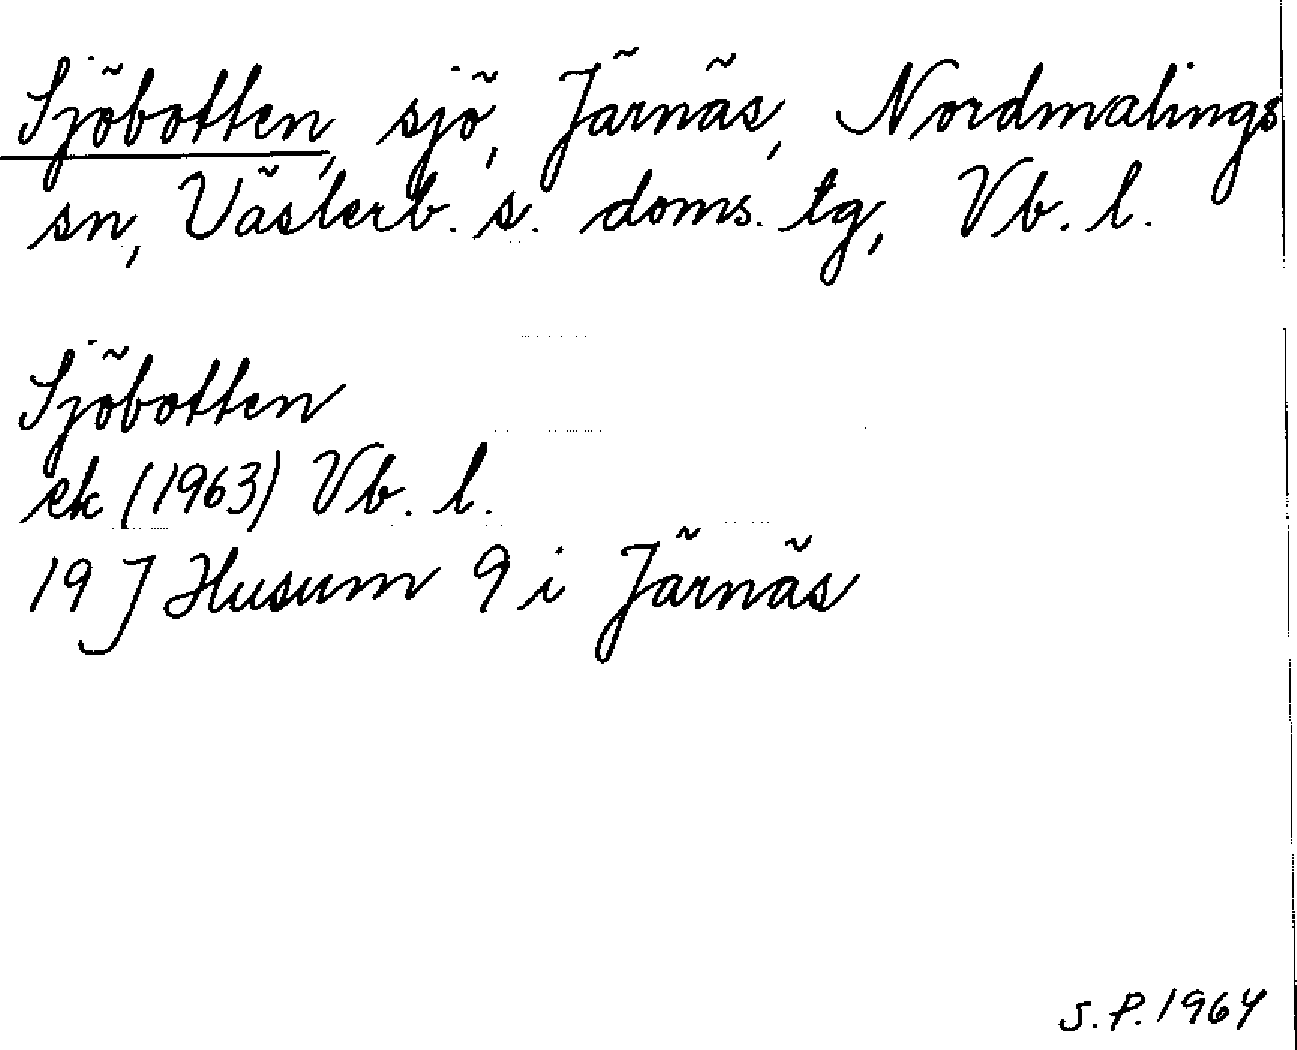 Sjöbotten, sjö, Järnäs, Nordmalings
sn, Västerb. s. doms. tg, Vb. l.
Sjöbotten
ek (1963) Vb. l.
19 J Husum 9 i Järnäs
S. P. 1964